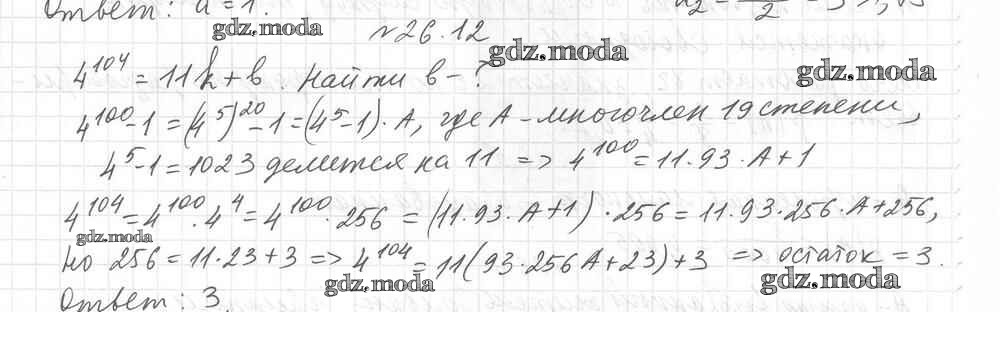 Ответ: a = 1.
gdz.moda
№26.12
gdz.moda
4^104 = 11k + в. найти в - ?
gdz.moda
4^100 - 1 = (4^5)^20 - 1 = (4^5 - 1) · A, где A - многочлен 19 степени,
4^5 - 1 = 1023 делится на 11 => 4^100 = 11·93·A + 1
4^104 = 4^100 · 4^4 = 4^100 · 256 = (11·93·A + 1) · 256 = 11·93·256·A + 256,
gdz.moda
но 256 = 11·23 + 3 => 4^104 = 11(93·256A + 23) + 3 => остаток = 3.
gdz.moda
gdz.moda
Ответ: 3.